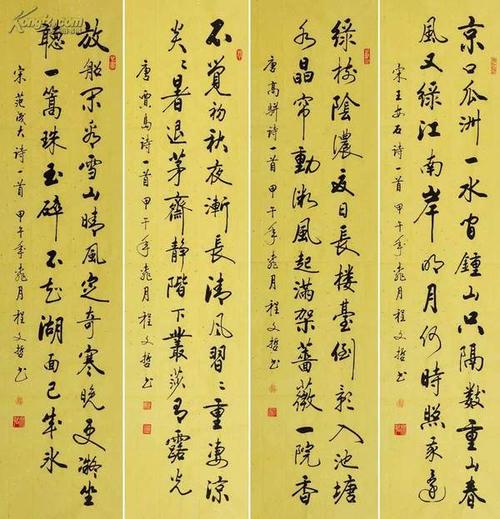 京口瓜洲一水間鐘山只隔數重山春
風又綠江南岸明月何時照我還
宋王安石詩一首 甲午年 月程文哲书
綠樹陰濃夏日長樓臺倒影入池塘
水晶帘動微風起滿架薔薇一院香
唐高駢詩一首 甲午年 月程文哲书
不覺初秋夜漸長清風習〻重凄涼
炎〻暑退茅齋靜階下叢莎有露光
唐賈島詩一首 甲午年 月程文哲书
放船閑看雪山晴風定奇寒晚更凝坐
聽一篙珠玉碎不知湖面已成冰
宋范成大詩一首 甲午年 月程文哲书